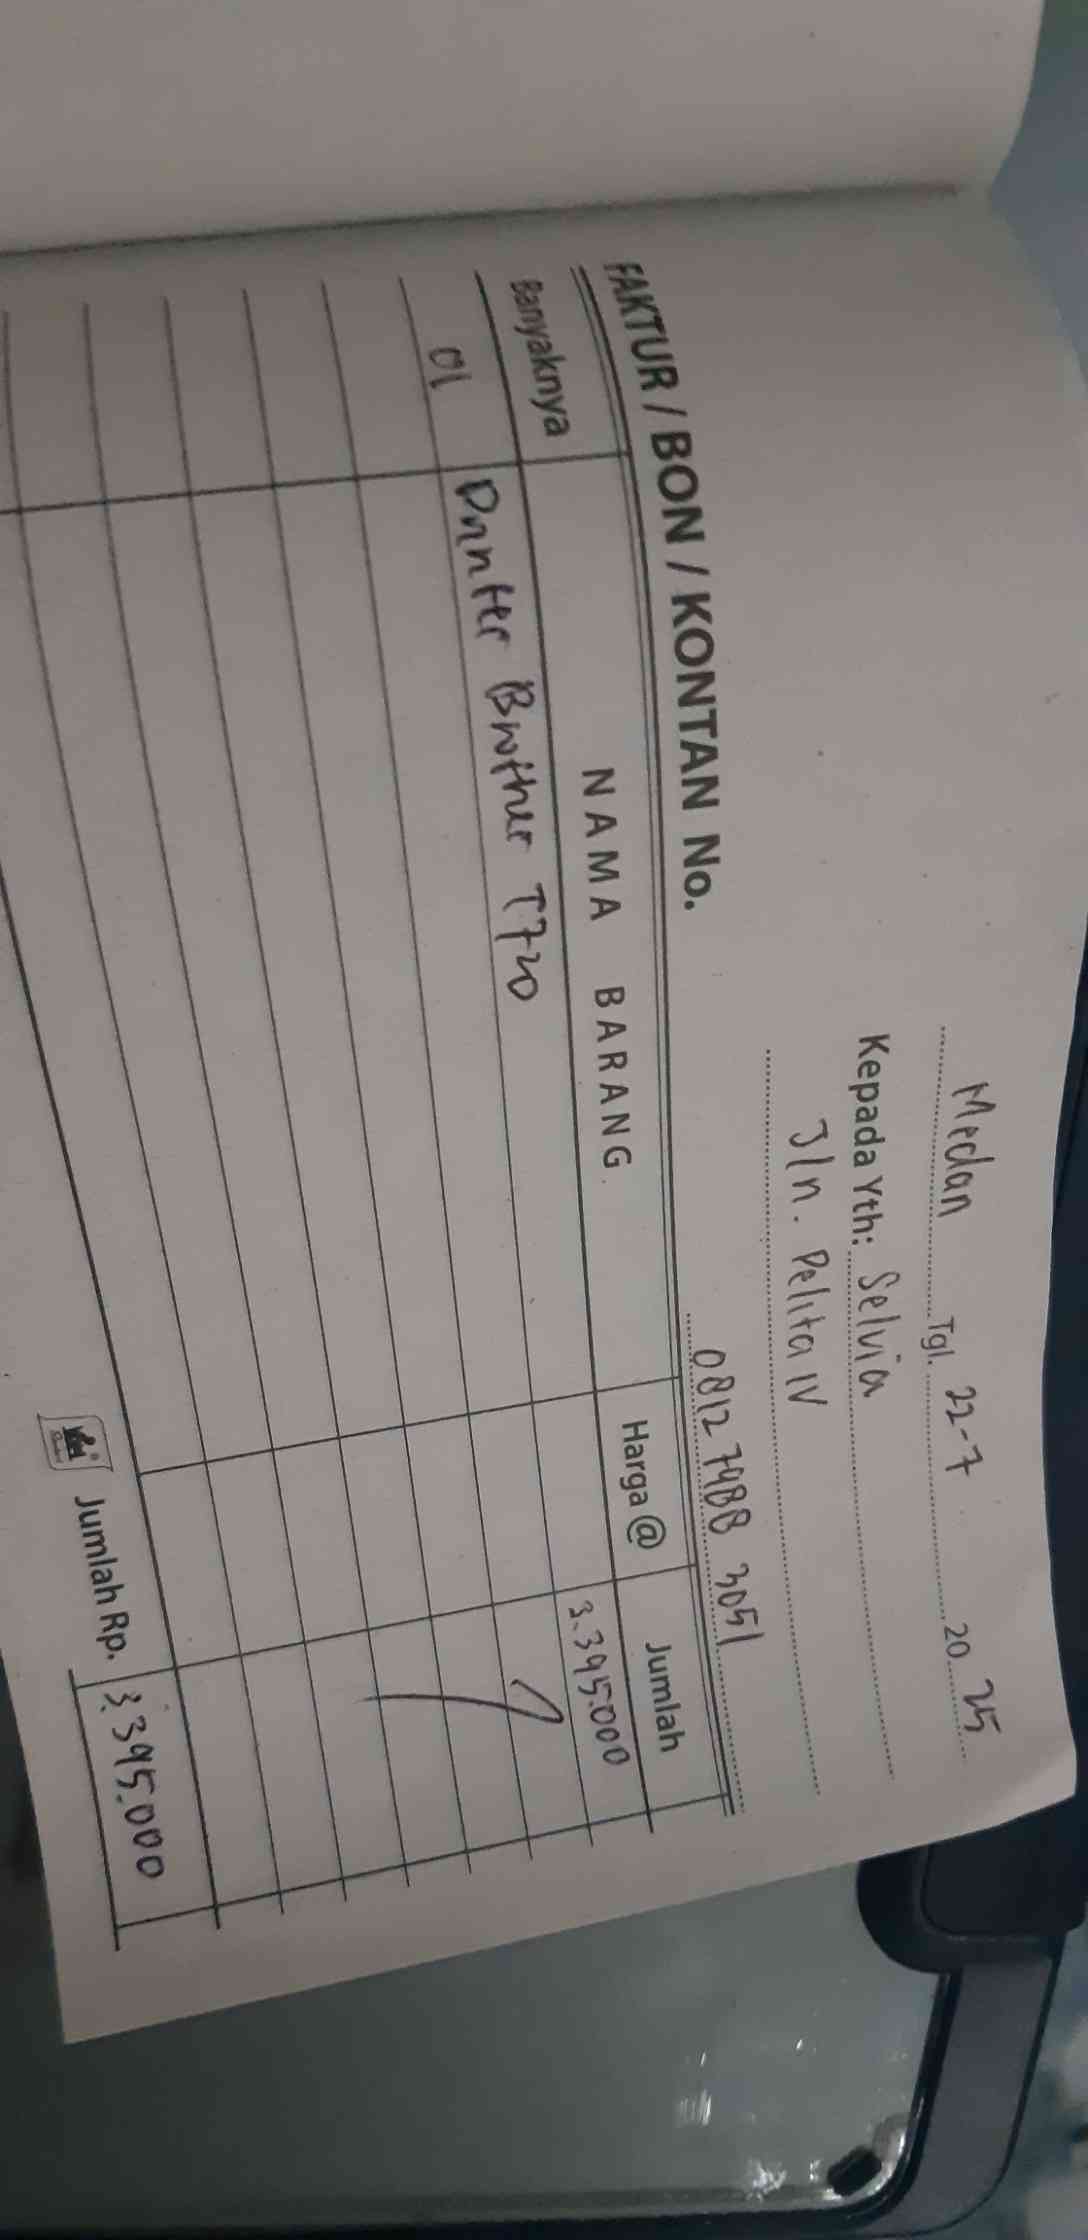 Medan Tgl. 22-7 20 25
Kepada Yth: Selvia
Jln. Pelita IV
0812 7488 3051
FAKTUR / BON / KONTAN No.
Banyaknya NAMA BARANG Harga @ Jumlah
01 Printer Brother T720 3.395.000
Jumlah Rp. 3.395.000